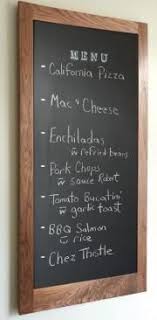 MENU
- California Pizza
- Mac & Cheese
- Enchiladas
w refried beans
- Pork Chops
w sauce Robert
- Tomato Bucatini
w garlic toast
- BBQ Salmon
w rice
- Chez Thistle